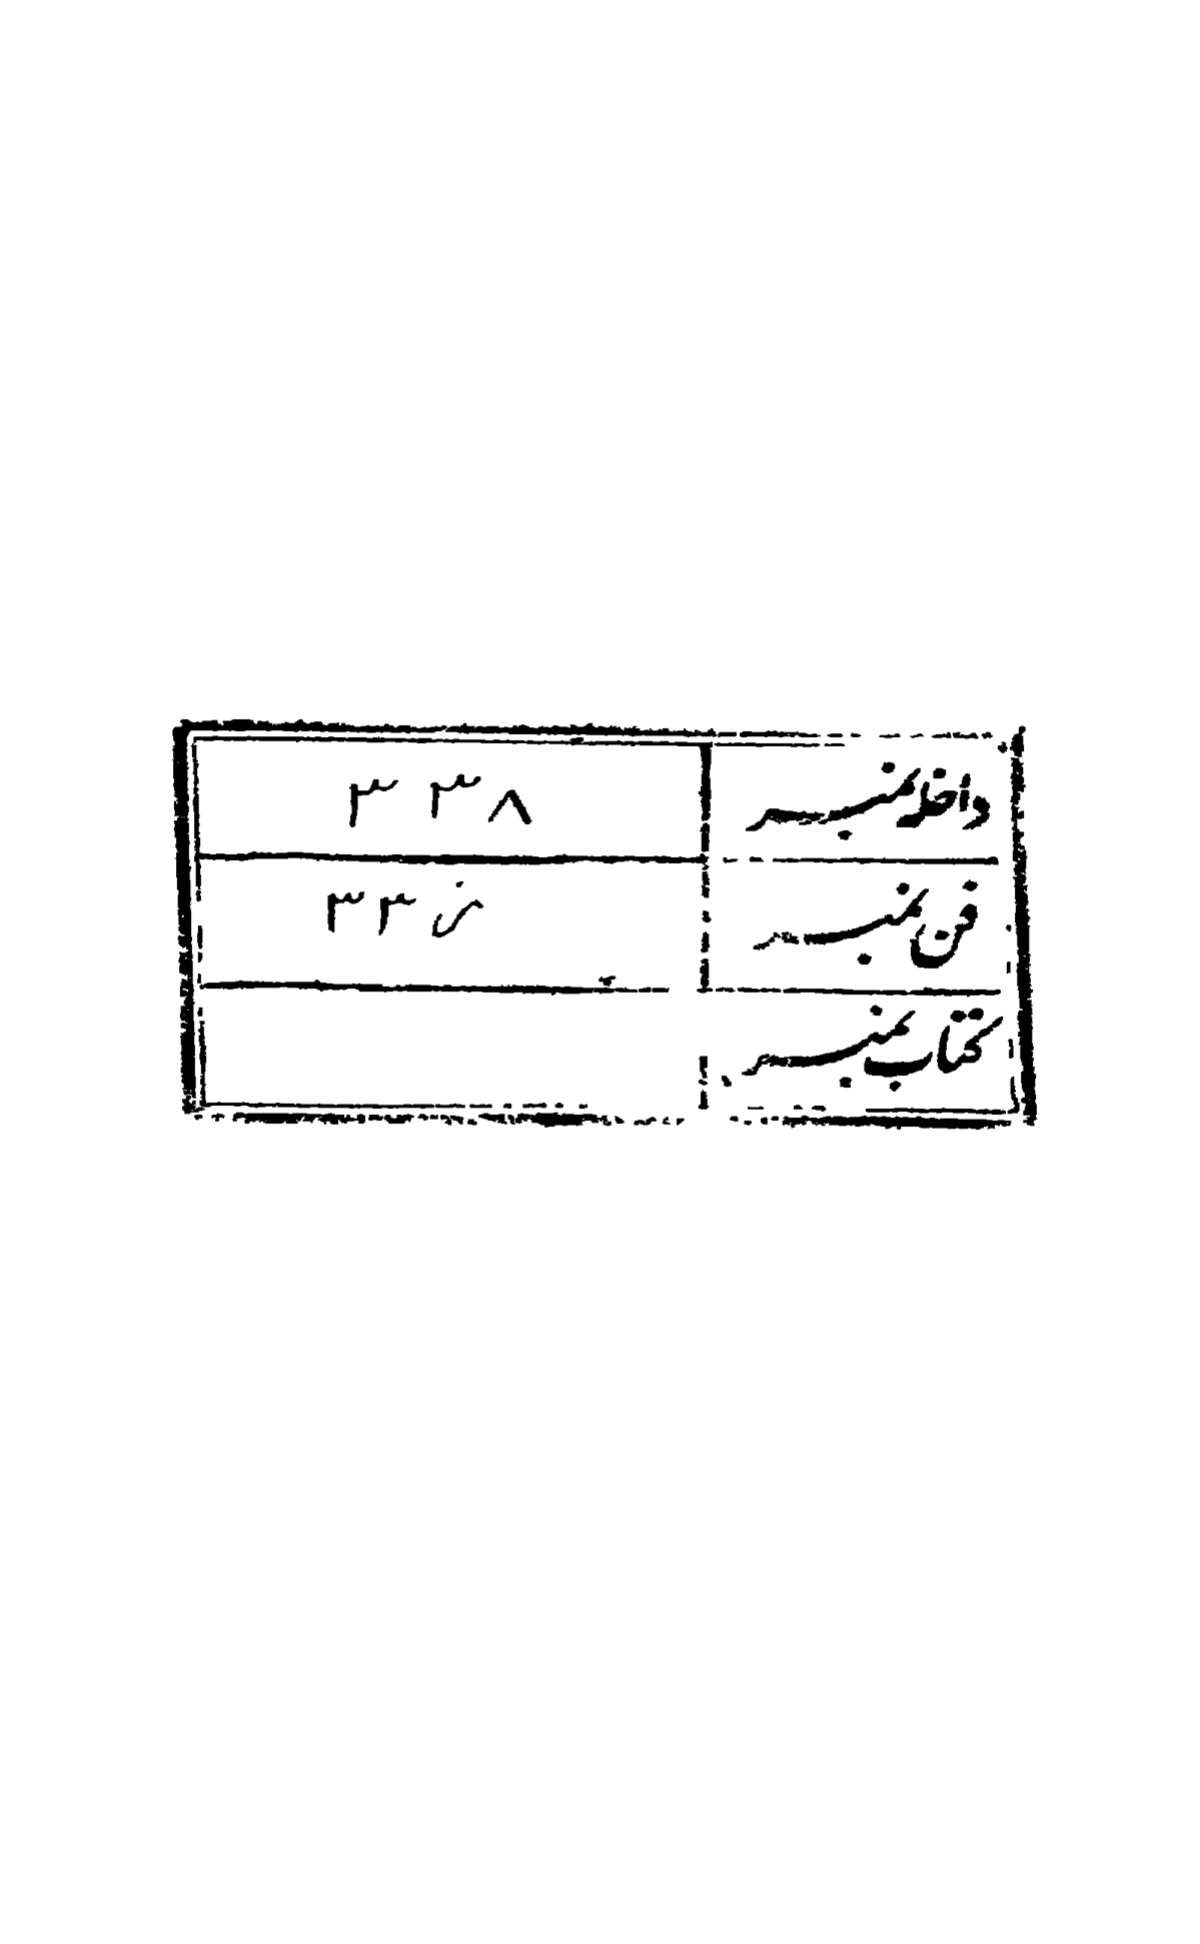 داخلہ نمبر ۳۳۸
فن نمبر ۳۳
کتاب نمبر